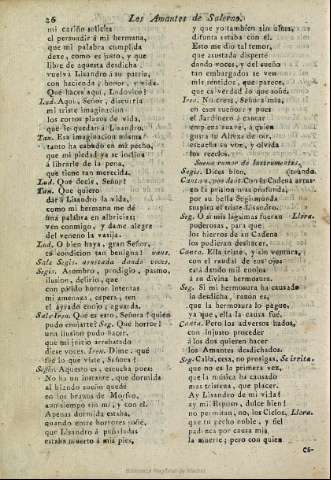 26 Los Amantes de Salerno.
mi cariño solicita
el persuadir á mi hermana,
que mi palabra cumplida
dexe, como es justo, y que
libre de aquesta desdicha
vuelva Lisandro á su patria,
con hacienda, honor, y vida.
Qué haces aquí, Ludovico?
Lud. Aquí, Señor, discurria
mi triste imaginacion
los cortos plazos de vida,
que le quedan á Lisandro.
Tan. Esa imaginacion misma
tanto ha labrado en mi pecho,
que mi piedad ya se inclina
á librarle de la pena,
que tiene tan merecida.
Lud. Qué decis, Señor?
Tan. Que quiero
dar á Lisandro la vida,
como mi hermana me dé
una palabra en albricias;
ven conmigo, y dame alegre
del veneno la vasija.
Lud. O bien haya, gran Señor,
condicion tan benigna! vanse.
Sale Segis. asustada dando voces.
Segis. Asombro, prodigio, pasmo,
ilusion, delirio, que
con pálido horror intentas
mi amenaza, espera, ten
el ayrado enojo; aguarda.
Sale Iren. Qué es esto, Señora? quién
pudo enojarte? Seg. Qué horror!
una ilusion pudo hacer,
que mi juicio arrebatado
diese voces. Iren. Dime, qué
fué lo que viste, Señora?
Segis. Aquesto es; escucha pues:
No ha un instante, que dormida
al blando sueño quedé
en los brazos de Morfeo,
aun tiempo sin mí, y con él.
Apenas dormida estaba,
quando entre horrores soñé,
que Lisandro á puñaladas
estaba muerto á mis pies,
y que yo tambien sin aliento,
difunta estaba con él.
Esto me dió tal temor,
que asustada disperté
dando voces, y del sueño
tan embargados se ven
mis sentidos, que parece
que es verdad lo que soñé.
Iren. No creas, Señora mia,
en esos sueños; y pues
el Jardinero á cantar
empieza, oye, á quien
gusta tu Alteza de oir,
escucha su voz, y olvida
los recelos.
Suena rumor de instrumentos.
Segis. Dices bien,
Canta un, por dent. Con la cadena arrastrando
en la prision mas profunda,
por su bella Segismunda
suspira el triste Lisandro.
Seg. O si mis lágrimas fueran Llora.
poderosas, para que
los hierros de su Cadena
los pudieran deshacer.
Canta. Ella triste, y sin ventura,
con el caudal de sus ojos
está dando mil enojos
á su divina hermosura.
Seg. Si mi hermosura ha causado
la desdicha, razon es,
que la hermosura lo pague,
ya que, ella la causa fué.
Canta. Pero los adversos hados,
con injusto proceder
á los dos quieren hacer
los Amantes desdichados.
Seg. Calla, cesa, no prosigas, Se irrita.
que no es la primera vez,
que la música ha causado
mas tristeza, que placer.
Ay Lisandro de mi vida!
ay mi Esposo, dulce bien!
no permitan, no, los Cielos, Llora.
que tu pecho noble, y fiel
padezca por causa mia
la muerte; pero con quien
Ca-
Biblioteca Regional de Madrid